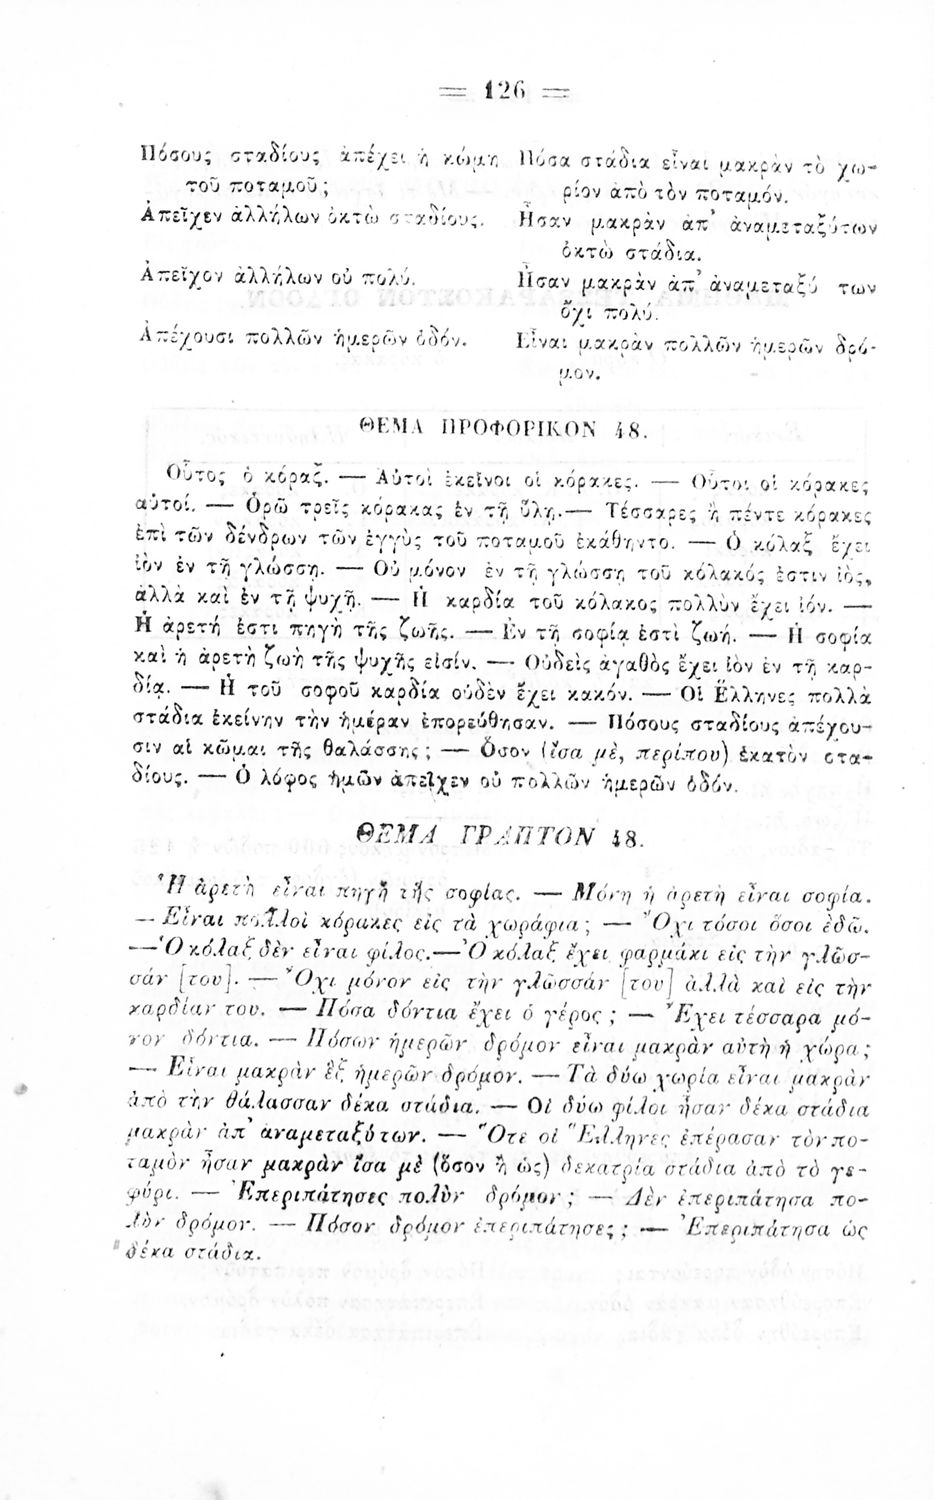 = 126 =
Πόσους σταδίους ἀπέχει ἡ κώμη
τοῦ ποταμοῦ;
Ἀπεῖχεν ἀλλήλων ὀκτὼ σταδίους.
Ἀπεῖχον ἀλλήλων οὐ πολύ.
Ἀπέχουσι πολλῶν ἡμερῶν ὁδόν.
Πόσα στάδια εἶναι μακρὰν τὸ χω-
ρίον ἀπὸ τὸν ποταμόν.
Ἦσαν μακρὰν ἀπ' ἀναμεταξύτων
ὀκτὼ στάδια.
Ἦσαν μακρὰν ἀπ' ἀναμεταξύ των
ὄχι πολύ.
Εἶναι μακρὰν πολλῶν ἡμερῶν δρό-
μον.
ΘΕΜΑ ΠΡΟΦΟΡΙΚΟΝ 48.
Οὗτος ὁ κόραξ. — Αὐτοὶ ἐκεῖνοι οἱ κόρακες. — Οὗτοι οἱ κόρακες
αὐτοί. — Ὁρῶ τρεῖς κόρακας ἐν τῇ ὕλῃ. — Τέσσαρες ἢ πέντε κόρακες
ἐπὶ τῶν δένδρων τῶν ἐγγὺς τοῦ ποταμοῦ ἐκάθηντο. — Ὁ κόλαξ ἔχει
ἰὸν ἐν τῇ γλώσσῃ. — Οὐ μόνον ἐν τῇ γλώσσῃ τοῦ κόλακός ἐστιν ἰὸς,
ἀλλὰ καὶ ἐν τῇ ψυχῇ. — Ἡ καρδία τοῦ κόλακος πολλὺν ἔχει ἰόν. —
Ἡ ἀρετή ἐστι πηγὴ τῆς ζωῆς. — Ἐν τῇ σοφίᾳ ἐστὶ ζωή. — Ἡ σοφία
καὶ ἡ ἀρετὴ ζωὴ τῆς ψυχῆς εἰσίν. — Οὐδεὶς ἀγαθὸς ἔχει ἰὸν ἐν τῇ καρ-
δίᾳ. — Ἡ τοῦ σοφοῦ καρδία οὐδὲν ἔχει κακόν. — Οἱ Ἕλληνες πολλὰ
στάδια ἐκείνην τὴν ἡμέραν ἐπορεύθησαν. — Πόσους σταδίους ἀπέχου-
σιν αἱ κῶμαι τῆς θαλάσσης; — Ὅσον (ἴσα μὲ, περίπου) ἑκατὸν στα-
δίους. — Ὁ λόφος ἡμῶν ἀπεῖχεν οὐ πολλῶν ἡμερῶν ὁδόν.
ΘΕΜΑ ΓΡΑΠΤΟΝ 48.
Ἡ ἀρετὴ εἶναι πηγὴ τῆς σοφίας. — Μόνη ἡ ἀρετὴ εἶναι σοφία.
— Εἶναι πολλοὶ κόρακες εἰς τὰ χωράφια; — Ὄχι τόσοι ὅσοι ἐδῶ.
— Ὁ κόλαξ δὲν εἶναι φίλος. — Ὁ κόλαξ ἔχει φαρμάκι εἰς τὴν γλῶσ-
σάν [του]. — Ὄχι μόνον εἰς τὴν γλῶσσάν [του] ἀλλὰ καὶ εἰς τὴν
καρδίαν του. — Πόσα δόντια ἔχει ὁ γέρος; — Ἔχει τέσσαρα μό-
νον δόντια. — Πόσων ἡμερῶν δρόμον εἶναι μακρὰν αὐτὴ ἡ χώρα;
— Εἶναι μακρὰν ἓξ ἡμερῶν δρόμον. — Τὰ δύω χωρία εἶναι μακρὰν
ἀπὸ τὴν θάλασσαν δέκα στάδια. — Οἱ δύω φίλοι ἦσαν δέκα στάδια
μακρὰν ἀπ' ἀναμεταξύ των. — Ὅτε οἱ Ἕλληνες ἐπέρασαν τὸν πο-
ταμὸν ἦσαν μακρὰν ἴσα μὲ (ὅσον ἢ ὡς) δεκατρία στάδια ἀπὸ τὸ γε-
φύρι. — Ἐπεριπάτησες πολὺν δρόμον; — Δὲν ἐπεριπάτησα πο-
λὺν δρόμον. — Πόσον δρόμον ἐπεριπάτησες; — Ἐπεριπάτησα ὡς
δέκα στάδια.